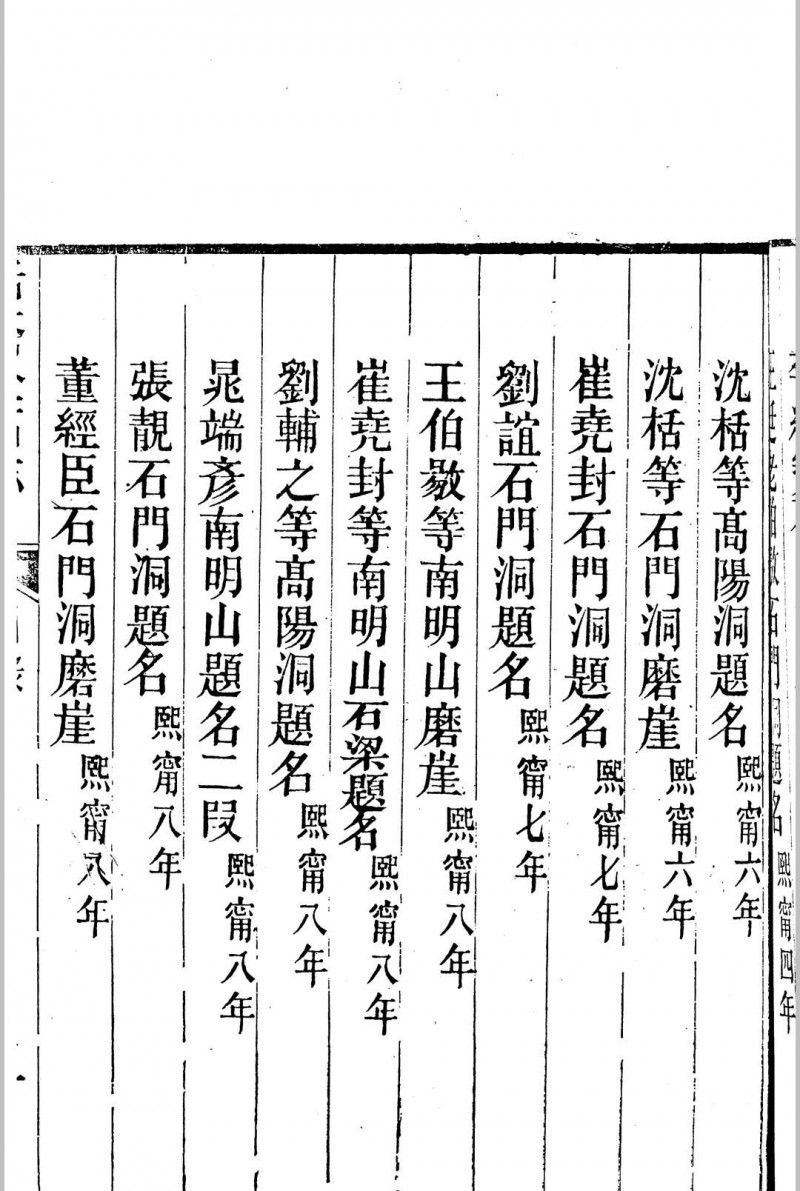 沈栝等髙陽洞題名熙甯六年
沈栝等石門洞磨崖熙甯六年
崔堯封石門洞題名熙甯七年
劉誼石門洞題名熙甯七年
王伯敭等南明山磨崖熙甯八年
崔堯封等南明山石梁題名熙甯八年
劉輔之等髙陽洞題名熙甯八年
晁端彥南明山題名二段熙甯八年
張靚石門洞題名熙甯八年
董經臣石門洞磨崖熙甯八年